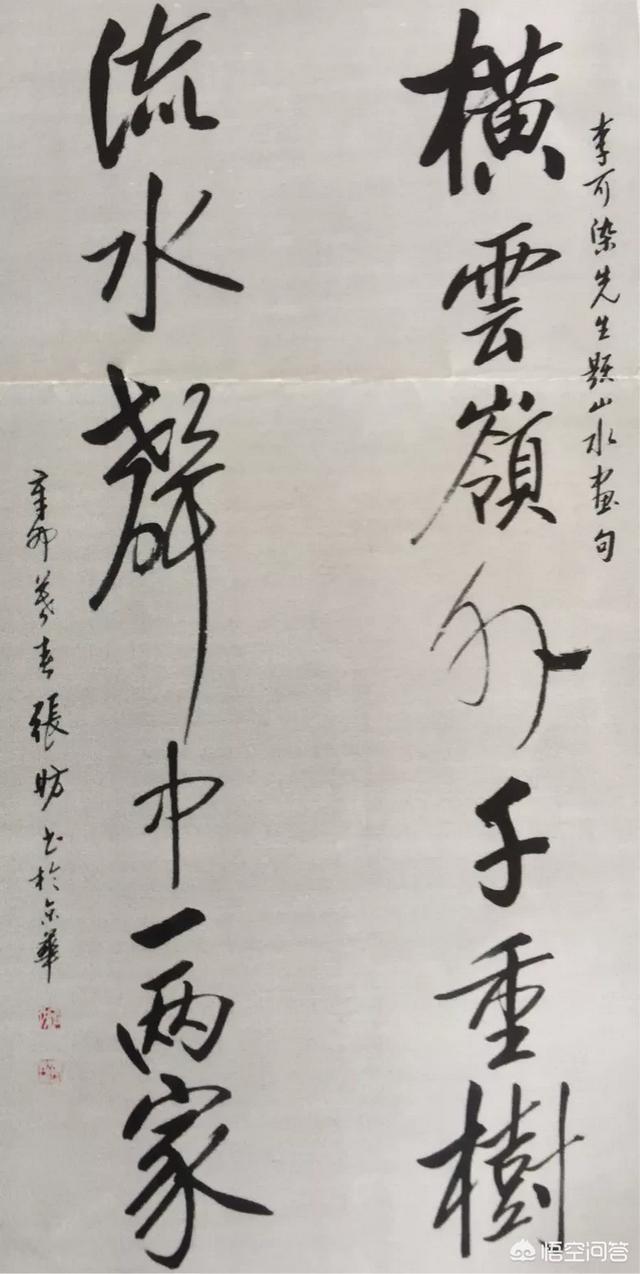 李可染先生题山水畫句
橫雲嶺外千重樹
流水聲中一两家
辛卯暮春張昉书於京華
悟空问答